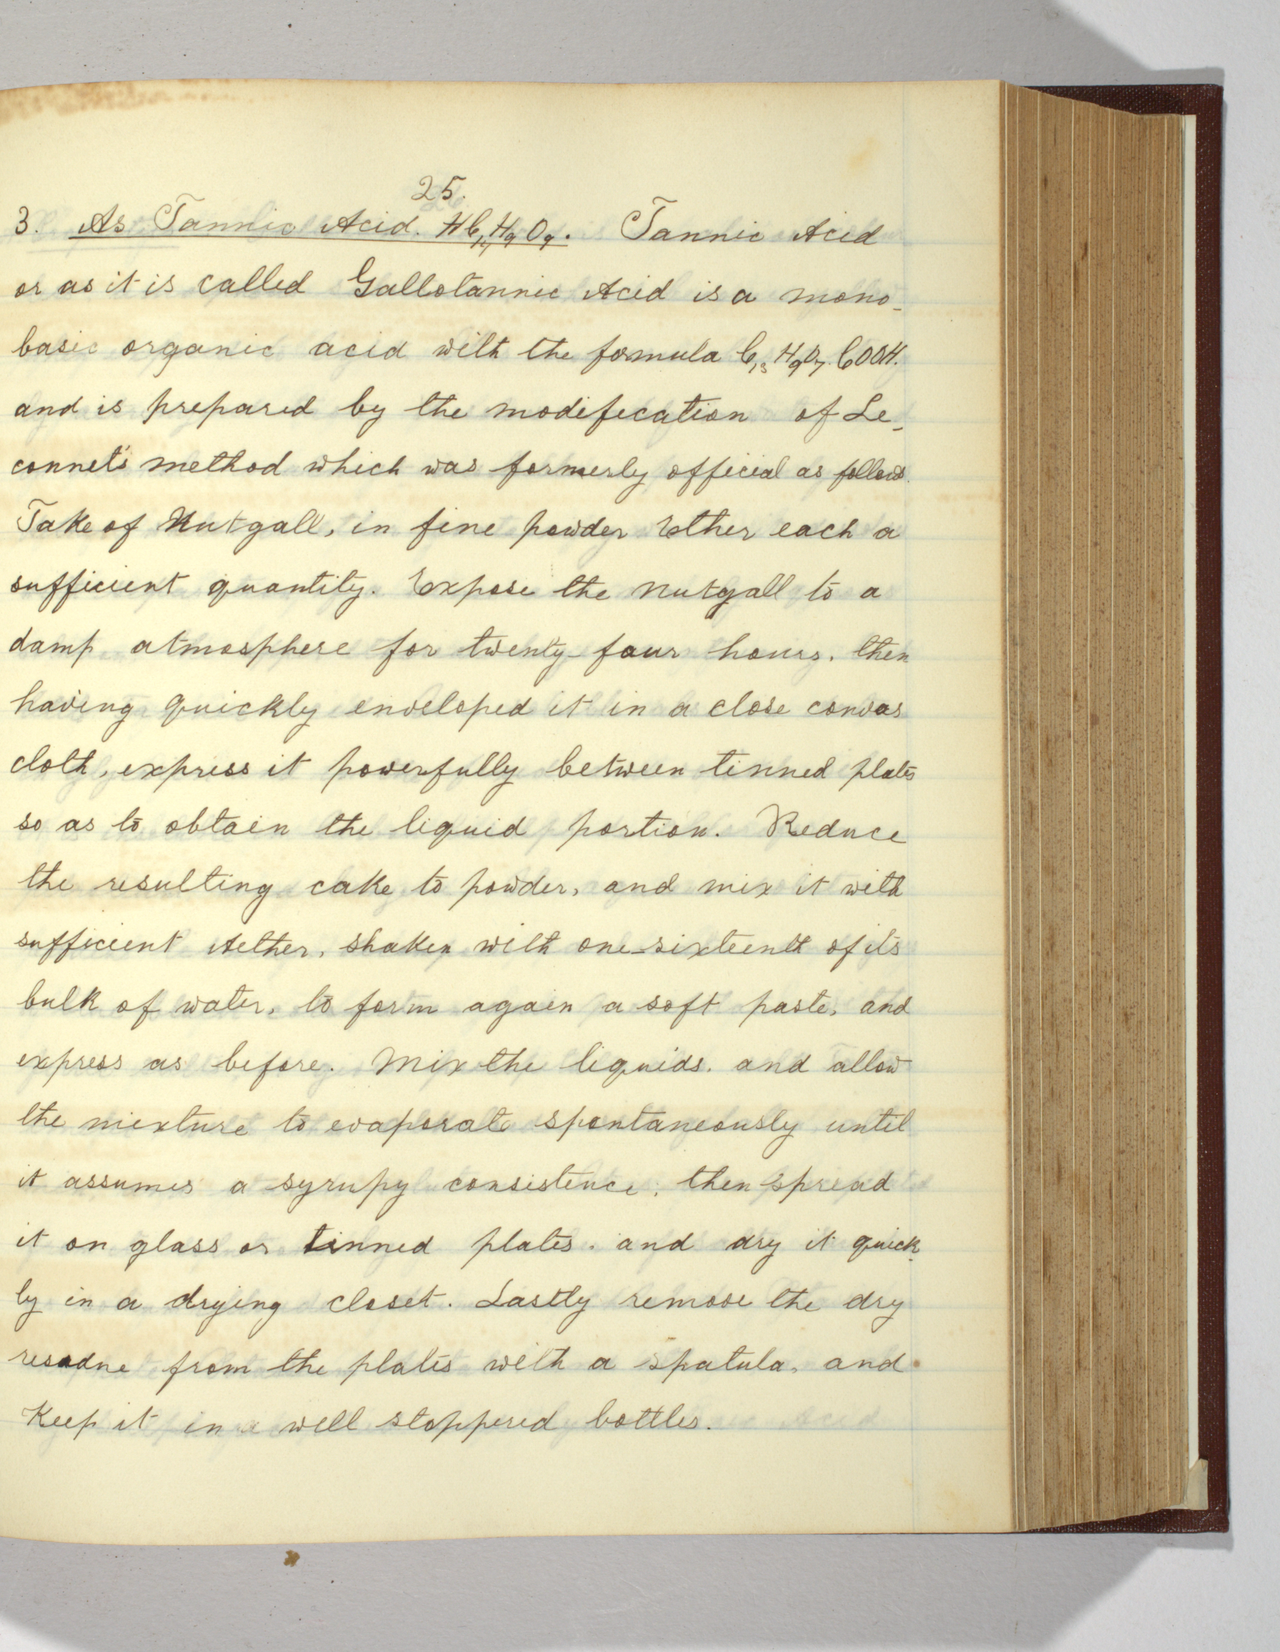 25.
3. As Tannic Acid. HC₁₄H₉O₉. Tannic Acid
or as it is called Gallotannic Acid is a mono-
basic organic acid with the formula C₁₃H₉O₇COOH.
and is prepared by the modification of Le-
connet's method which was formerly official as follows.
Take of Nutgall, in fine powder Ether each a
sufficient quantity. Expose the nutgall to a
damp atmosphere for twenty-four hours, then
having quickly enveloped it in a close canvas
cloth, express it powerfully between tinned plates
so as to obtain the liquid portion. Reduce
the resulting cake to powder, and mix it with
sufficient Aether, shaken with one-sixteenth of its
bulk of water, to form again a soft paste, and
express as before. Mix the liquids. and allow
the mixture to evaporate spontaneously until
it assumes a syrupy consistence, then spread
it on glass or tinned plates. and dry it quick-
ly in a drying closet. Lastly remove the dry
resadue from the plates with a spatula, and
Keep it in well stoppered bottles.